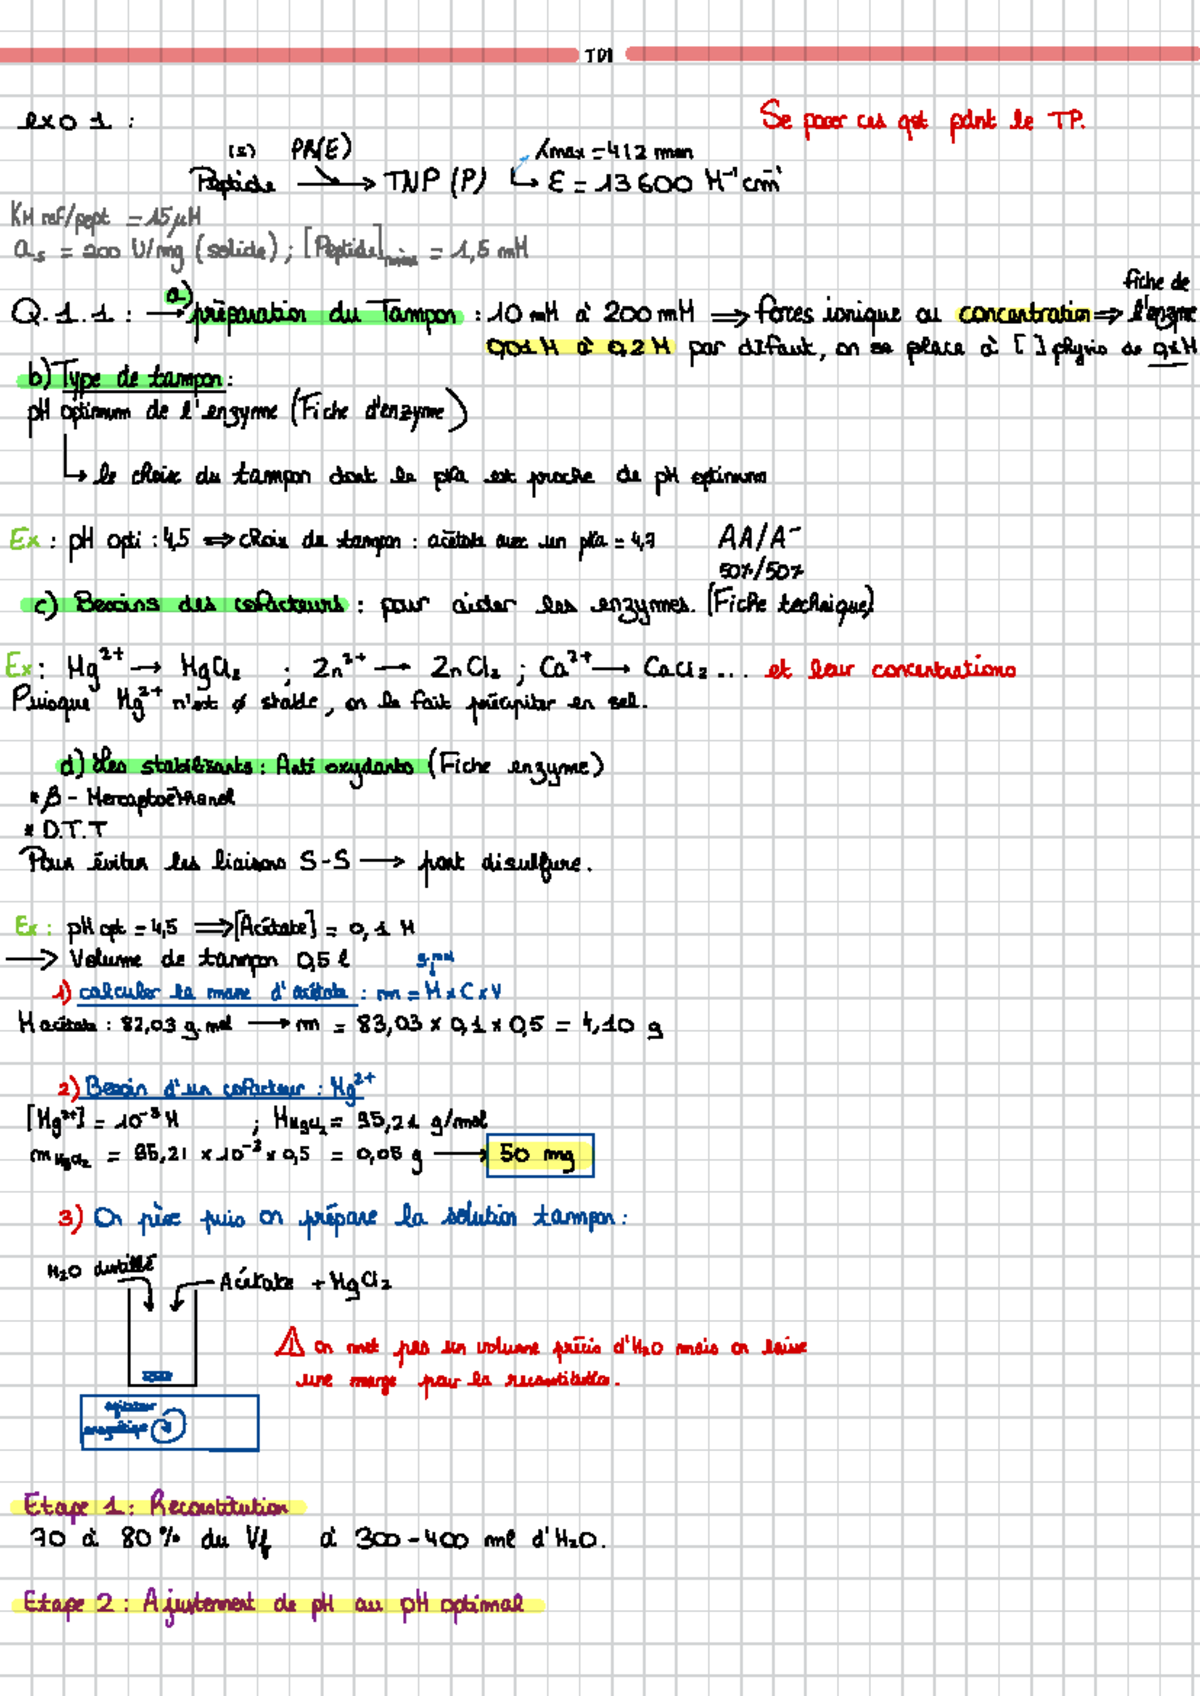 TD1
exo 1 :
Se poser ces qst pdnt le TP.
(S) PR(E) λmax = 412 nm
Peptide → TNP (P) ↳ ε = 13600 M⁻¹ cm⁻¹
KM ref/pept = 15 μM
as = 200 U/mg (solide) ; [Peptide] = 1,5 mM
fiche de
Q.1.1 : → a) préparation du Tampon : 10 mM à 200 mM ⇒ forces ionique ou concentration ⇒ l'enzyme
0,01 M à 0,2 M par défaut, on se place à [ ] physio de 0,1 M
b) Type de tampon :
pH optimum de l'enzyme (Fiche d'enzyme)
↳ le choix du tampon dont le pKa est proche de pH optimum
Ex : pH opti : 4,5 ⇒ choix de tampon : acétate avec un pKa = 4,7 AA/A⁻
50%/50%
c) Besoins des cofacteurs : pour aider les enzymes. (Fiche technique)
Ex : Mg²⁺ → MgCl₂ ; Zn²⁺ → ZnCl₂ ; Ca²⁺ → CaCl₂ ... et leur concentrations
Puisque Mg²⁺ n'est ø stable, on le fait précipiter en sel.
d) Les stabilisants : Anti oxydants (Fiche enzyme)
* β - Mercaptoéthanol
* D.T.T
Pour éviter les liaisons S-S → pont disulfure.
Ex : pH opt = 4,5 ⇒ [Acétate] = 0,1 M
→ Volume de tampon 0,5 l
g.mol
1) calculer la masse d'acétate : m = M x C x V
M acétate : 82,03 g.mol → m = 83,03 x 0,1 x 0,5 = 4,10 g
2) Besoin d'un cofacteur : Mg²⁺
[Mg²⁺] = 10⁻³ M ; MMgCl₂ = 95,21 g/mol
mMgCl₂ = 95,21 x 10⁻³ x 0,5 = 0,05 g → 50 mg
3) On pèse puis on prépare la solution tampon :
H₂O distillé
Acétate + MgCl₂
⚠ on met pas un volume précis d'H₂O mais on laisse
une marge pour la reconstitution.
agitateur
magnétique
Etape 1 : Reconstitution
70 à 80 % du Vf à 300-400 ml d'H₂O.
Etape 2 : Ajustement de pH au pH optimal